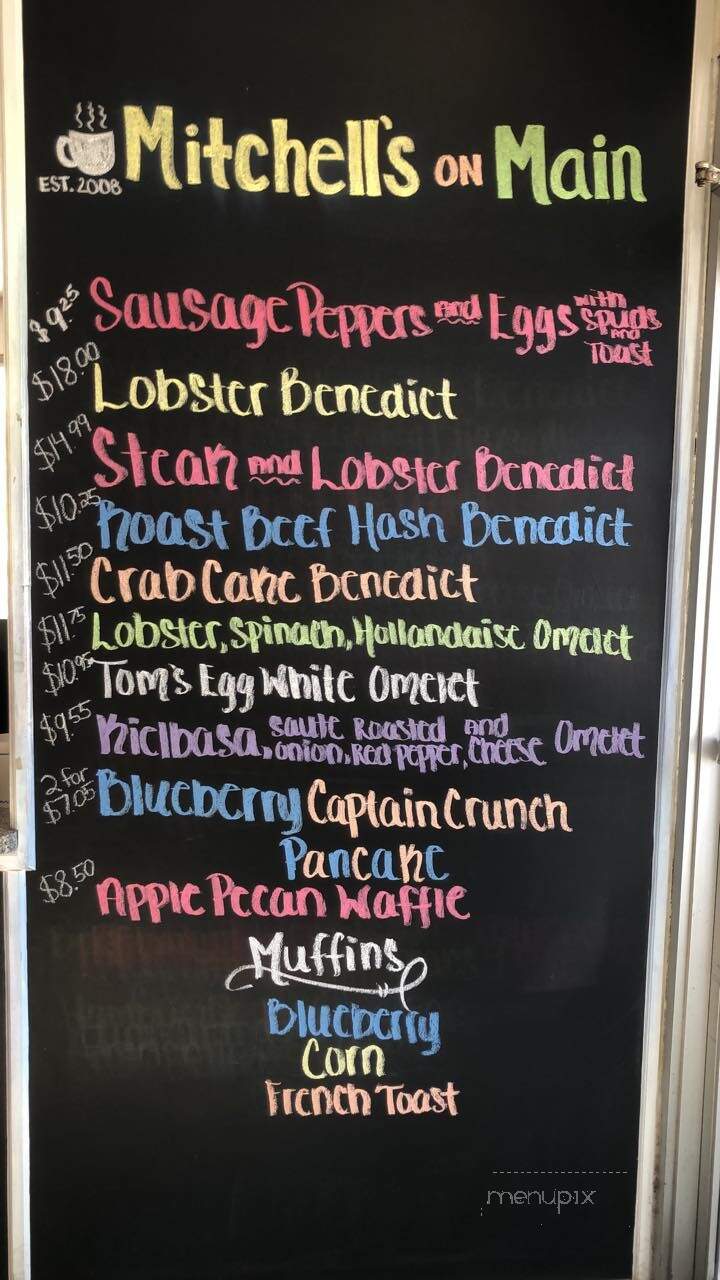 Mitchell's ON Main
EST. 2008
$9.25 Sausage Peppers and Eggs with Spuds and Toast
$18.00 Lobster Benedict
$14.99 Steak and Lobster Benedict
$10.25 Roast Beef Hash Benedict
$11.50 Crab Cake Benedict
$11.75 Lobster, Spinach, Hollandaise Omelet
$10.95 Tom's Egg White Omelet
$9.55 Kielbasa, saute onion, Roasted Red pepper, and Cheese Omelet
2 for $7.05 Blueberry Captain Crunch
Pancake
$8.50 Apple Pecan Waffle
Muffins
Blueberry
Corn
French Toast
menupix